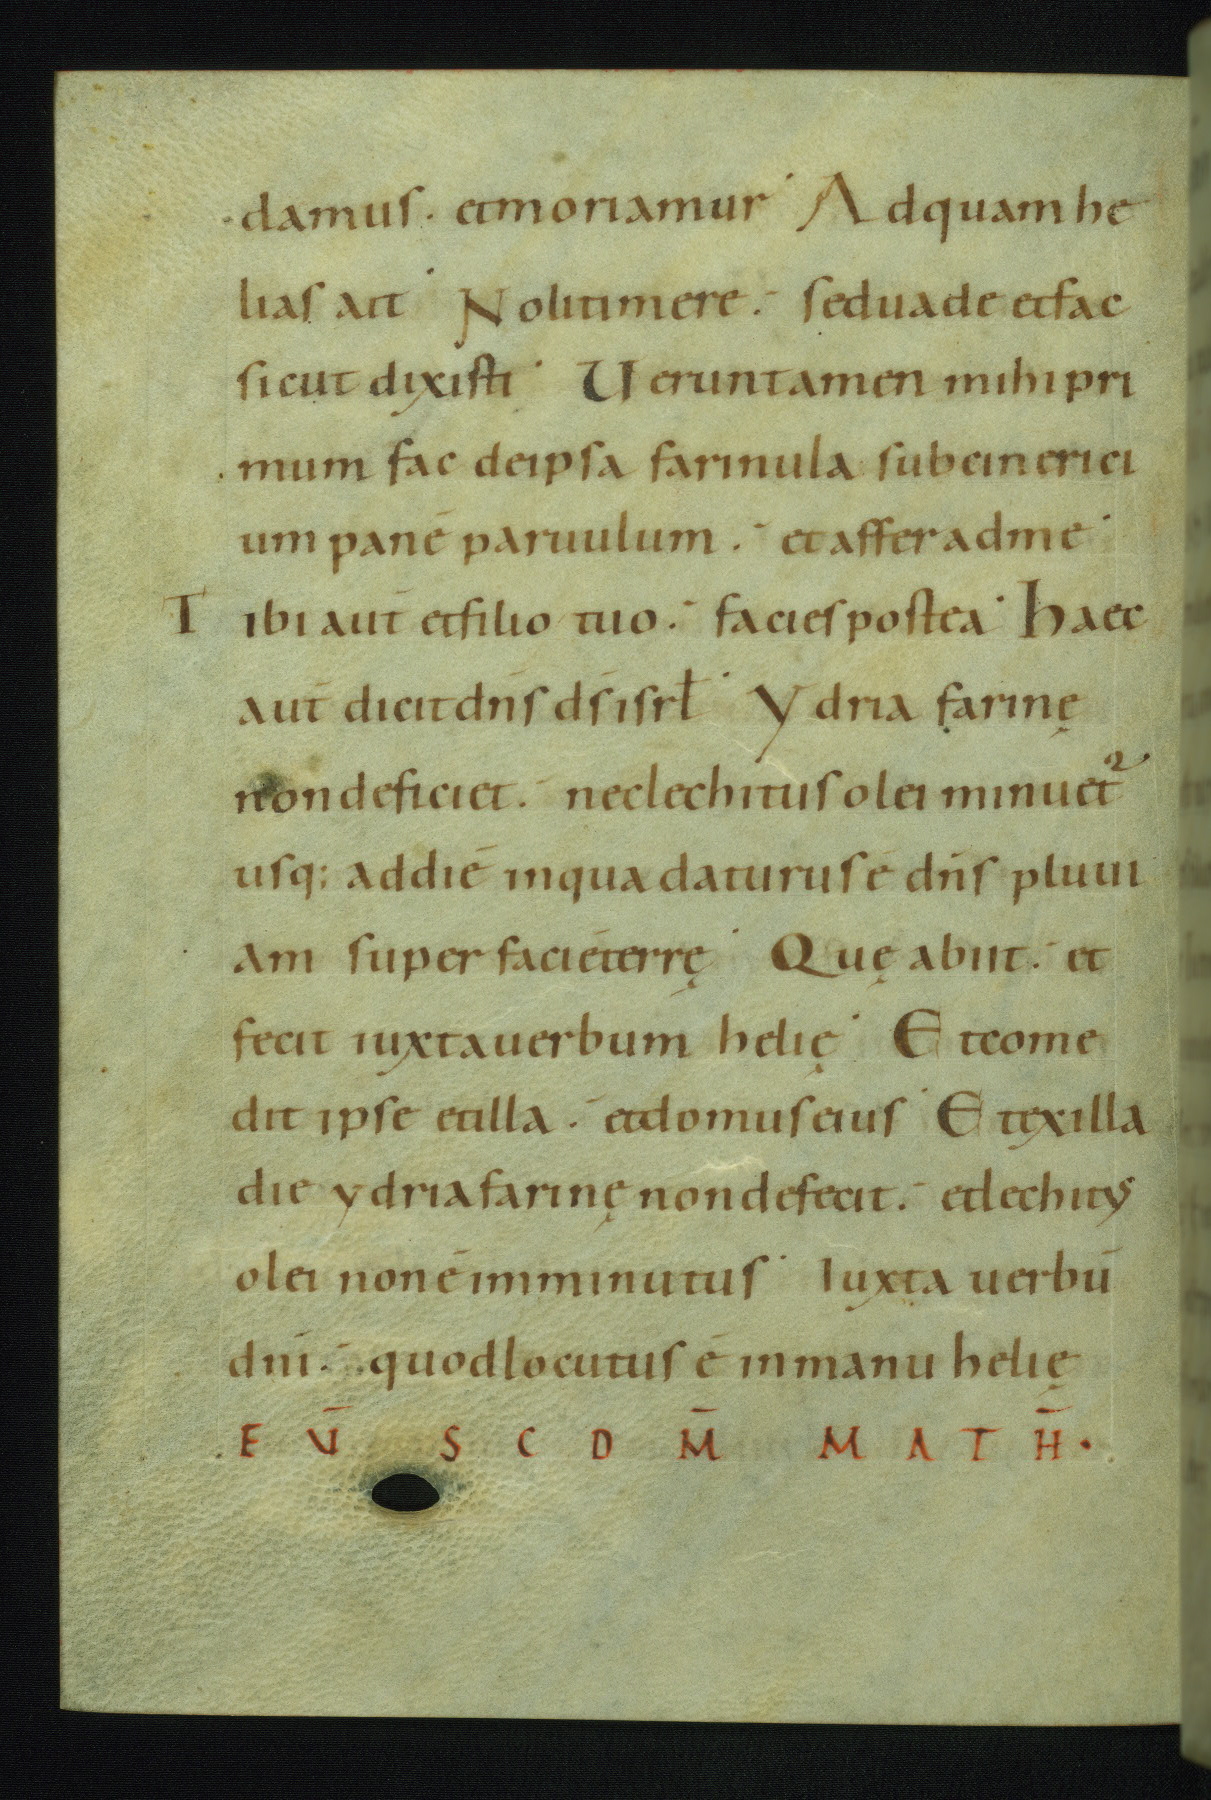 damus. et moriamur Ad quam he
lias ait Noli timere. sed uade et fac
sicut dixisti Ueruntamen mihi pri
mum fac de ipsa farinula subcinerici
um panē paruulum. et affer ad me
Tibi aut̄ et filio tuo. facies postea haec
aut̄ dicit dn̄s ds̄ isrł Ydria farinę
non deficiet. nec lechitus olei minuet᷑
usq; ad diē in qua daturus ē dn̄s pluui
am super faciē terrę Quę abiit. et
fecit iuxta uerbum helię Et come
dit ipse et illa. et domus eius Et ex illa
die ydria farinę non defecit. et lechitus
olei non ē imminutus Iuxta uerbū
dnī. quod locutus ē in manu helię
EŪ SCDM̄ MATH̄.